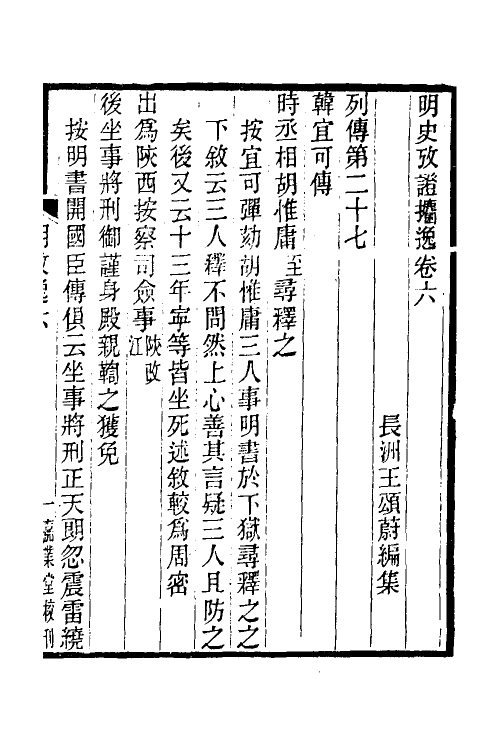 明史攷證攟逸卷六
長洲王頌蔚編集
列傳第二十七
韓宜可傳
時丞相胡惟庸至尋釋之
按宜可彈劾胡惟庸三人事明書於下獄尋釋之之
下敘云三人釋不問然上心善其言疑三人且防之
矣後又云十三年寧等皆坐死述敘較爲周密
出爲陝西按察司僉事陝改江
後坐事將刑御謹身殿親鞫之獲免
按明書開國臣傳俱云坐事將刑正天朗忽震雷繞
明攷逸六
一嘉業堂校刊